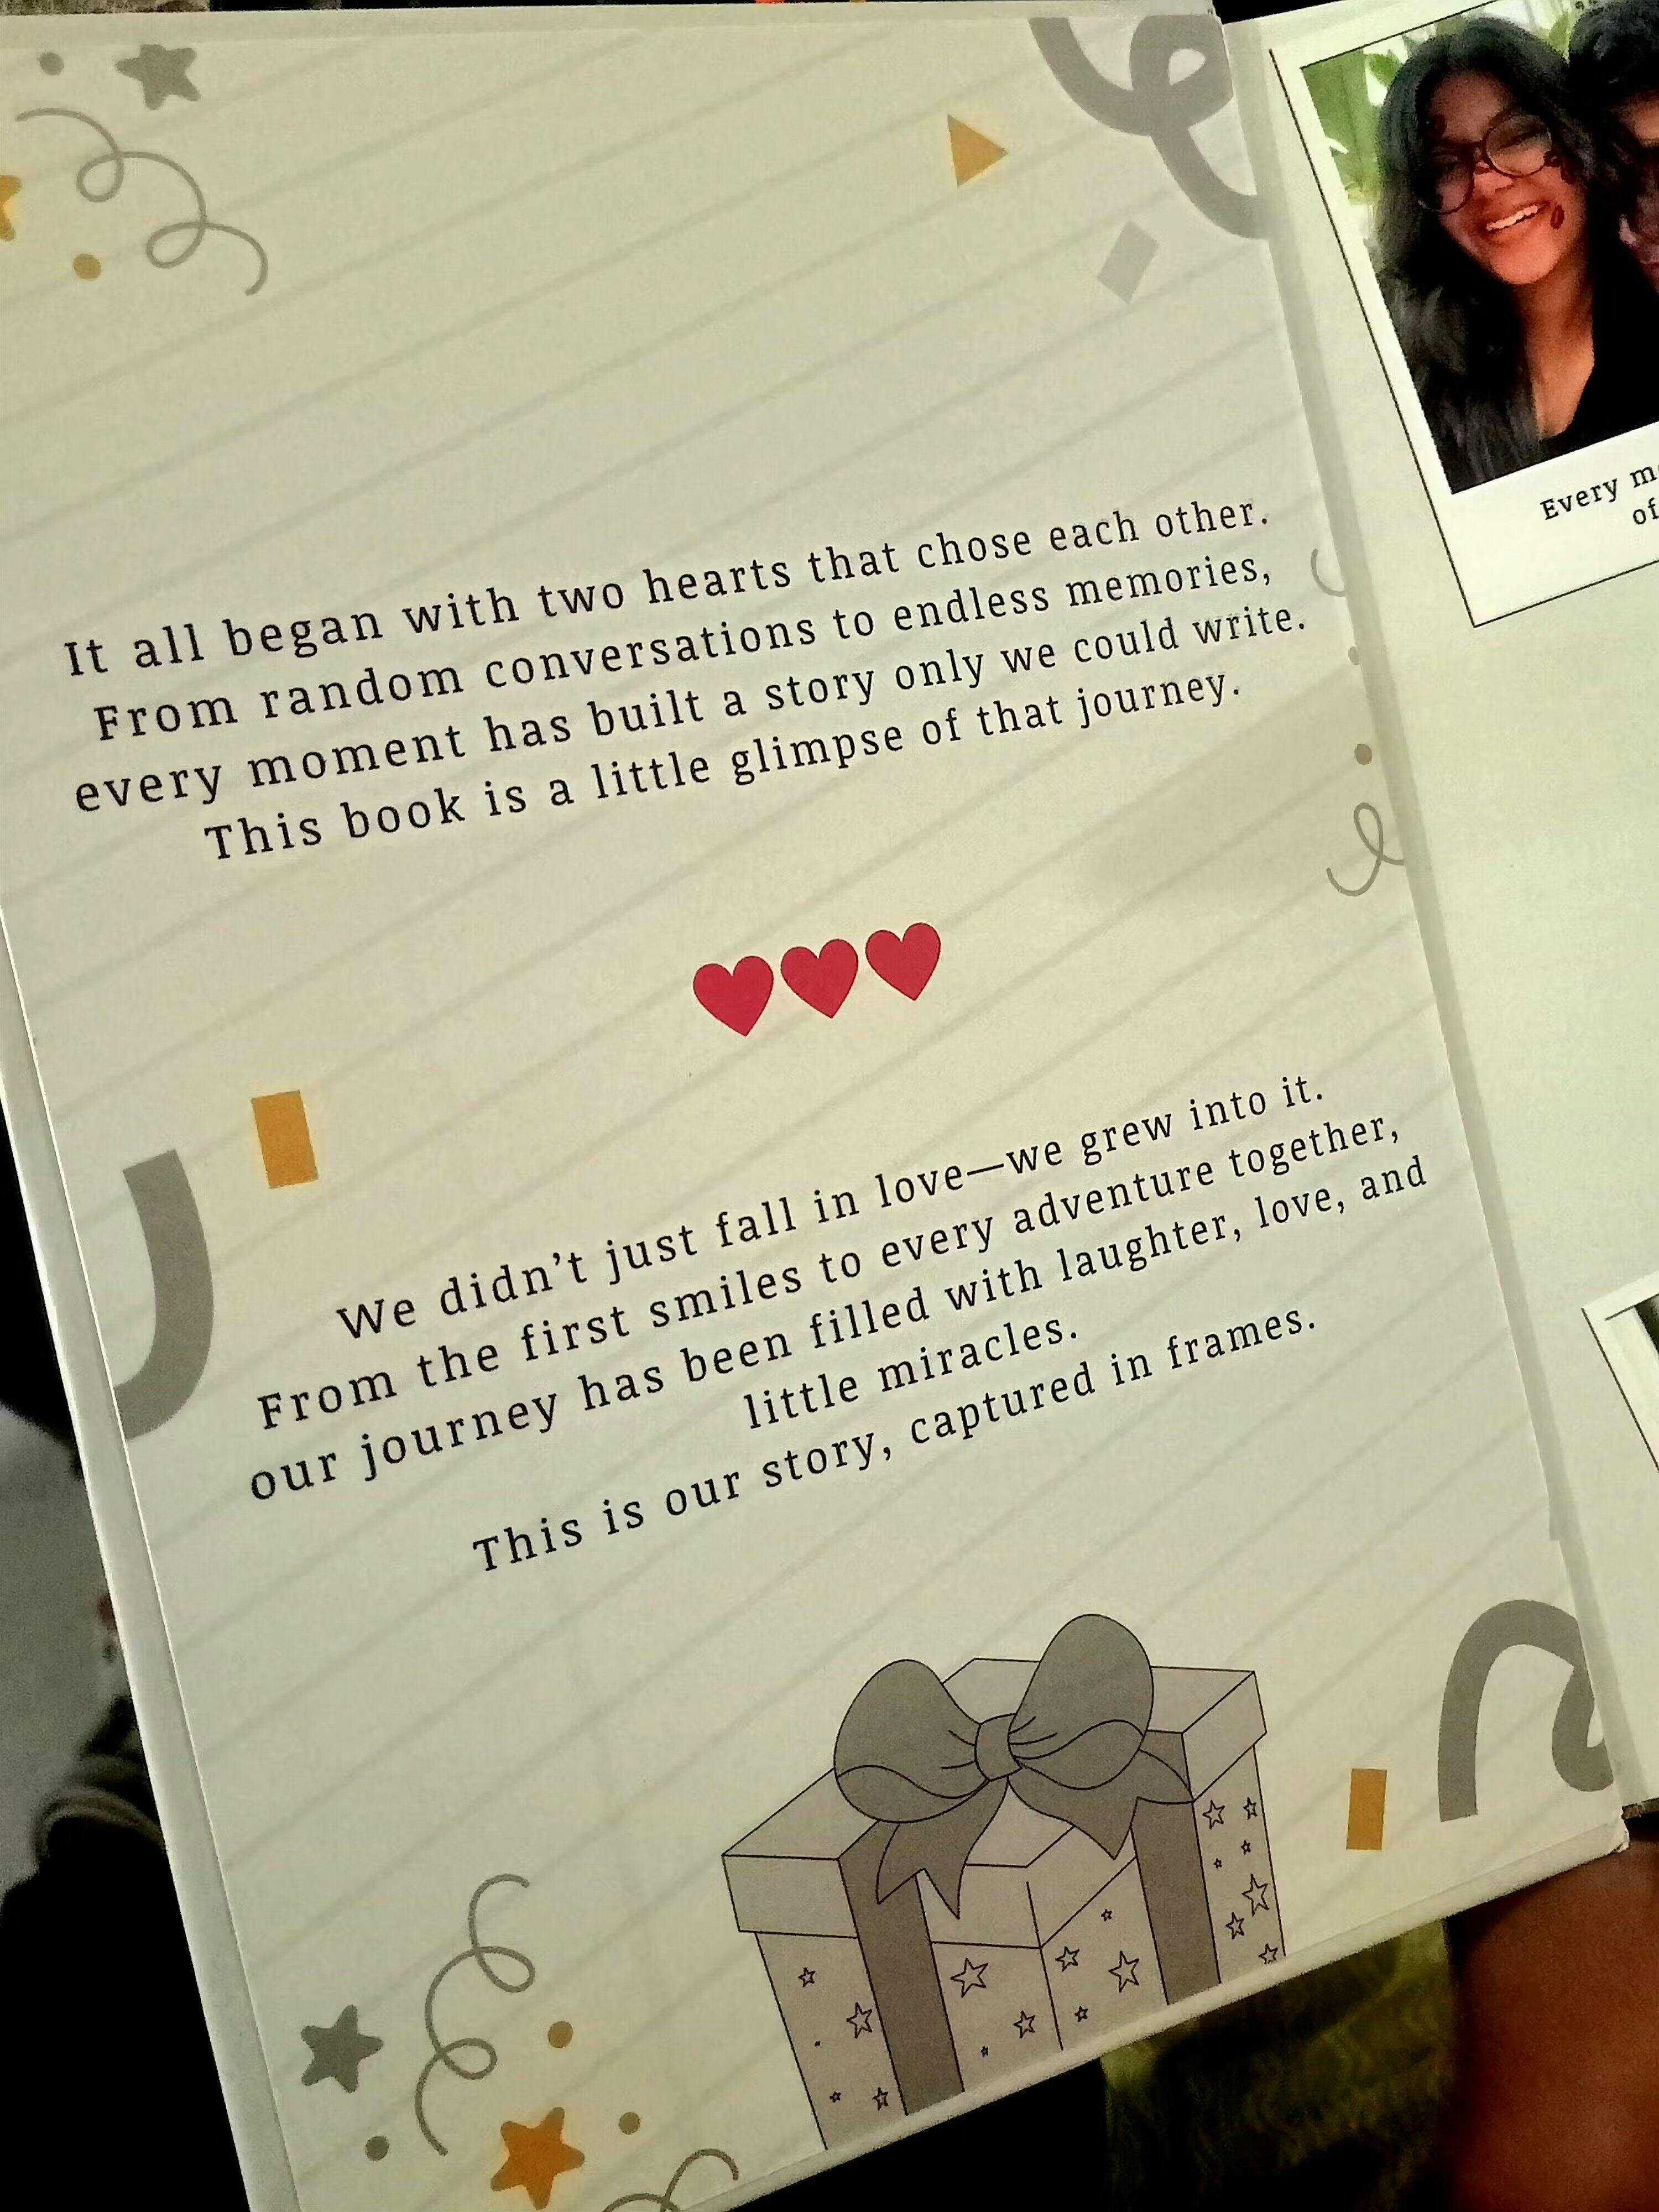 It all began with two hearts that chose each other.
From random conversations to endless memories,
every moment has built a story only we could write.
This book is a little glimpse of that journey.
We didn't just fall in love—we grew into it.
From the first smiles to every adventure together,
our journey has been filled with laughter, love, and
little miracles.
This is our story, captured in frames.
Every
of